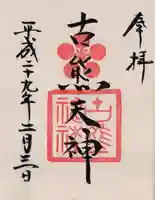 奉拝
古熊天神
平成二十九年二月三日